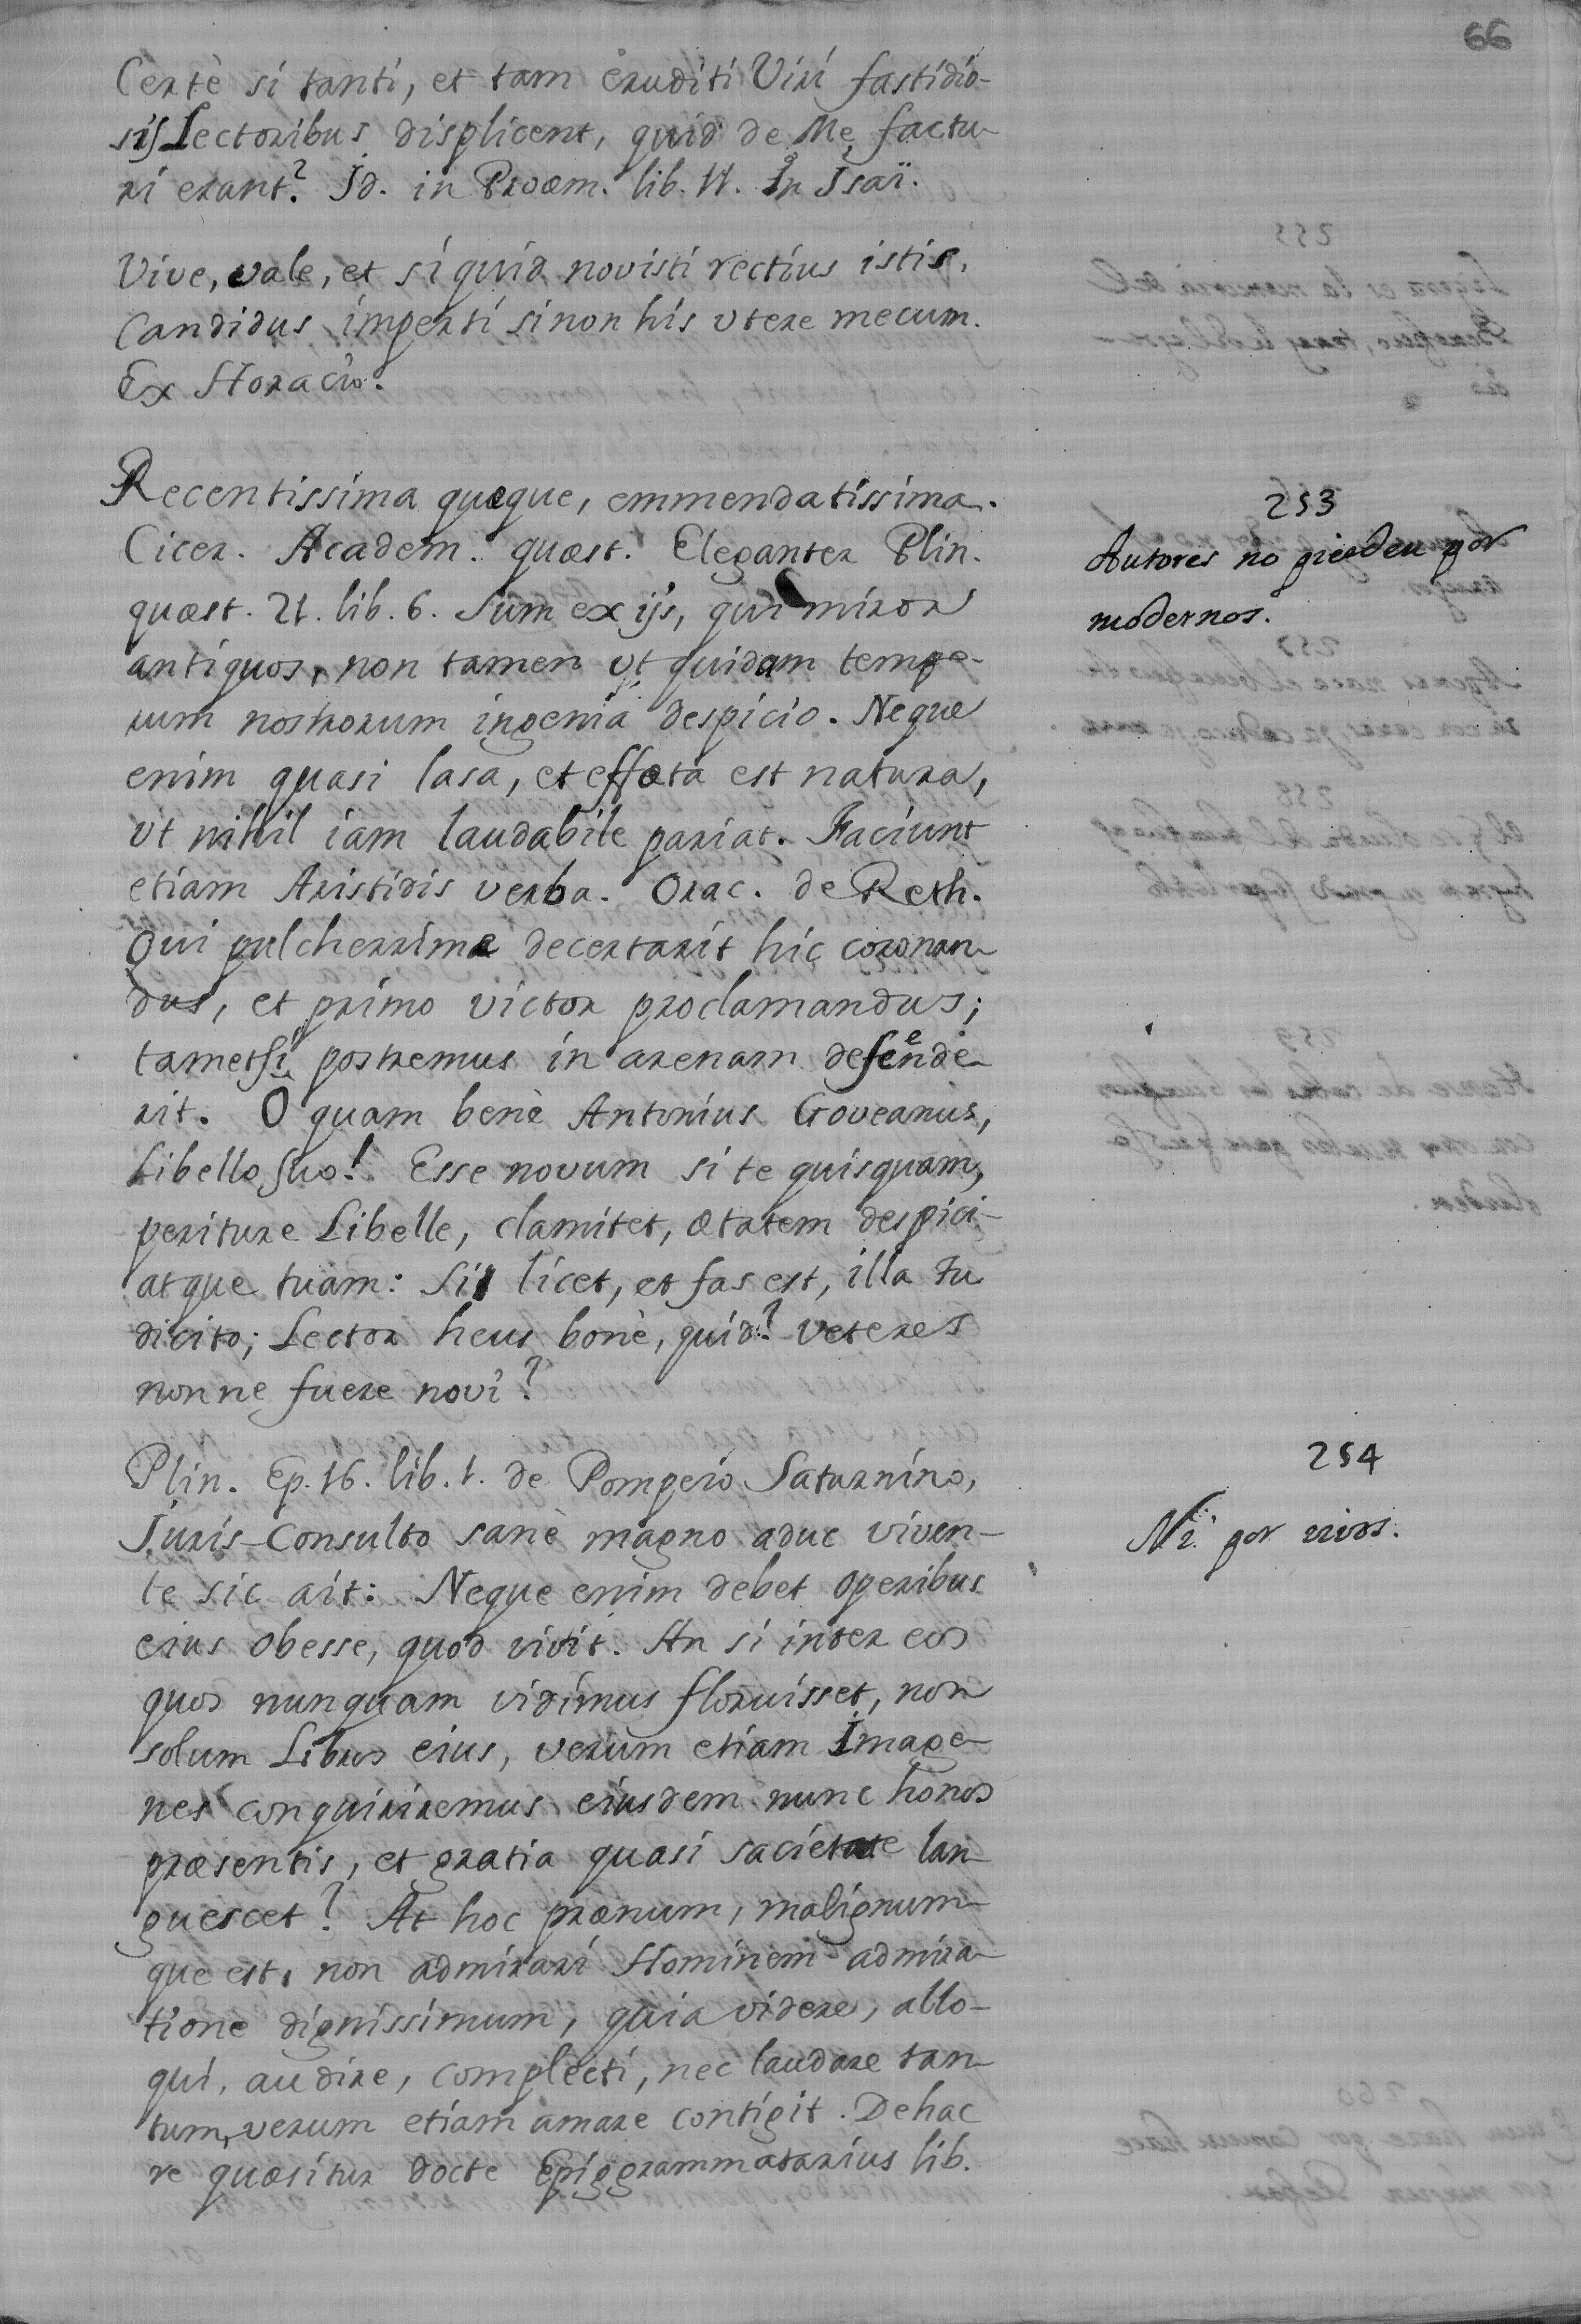 66
Certè si tanti, et tam eruditi Viri fastidio-
sis Lectoribus displicent, quid de Me factu-
ri erant? Jd. in Proœm. lib. 11. In Jsaï.
Vive, vale, et si quid novisti rectius istis,
Candidus imperti si non his vtere mecum.
Ex Horacio.
Recentissima quæque, emmendatissima.
Cicer. Academ. quæst. Eleganter Plin.
quæst. 21. lib. 6. Sum ex ijs, qui miror
antiquos, non tamen vt quidam tempo-
rum nostrorum ingenia despicio. Neque
enim quasi lasa, et effœta est natura,
vt nihil iam laudabile pariat. Faciunt
etiam Aristidis verba. Orac. de Reth.
Qui pulcherrimæ decertarit hic coronan-
dus, et primo victor proclamandus;
tametsi postremus in arenam desende-
rit. O quam benè Antonius Goveanus,
Libello suo! Esse novum si te quisquam,
periture Libelle, clamitet, ætatem despici-
atque tuam: Si licet, et fas est, illa tu
dicito; Lector heus bonè, quid? veteres
nonne fuere novi?
Plin. Ep. 16. lib. 1. de Pompeio Saturnino,
Juris-Consulto sanè magno aduc viven-
te sic ait: Neque enim debet operibus
eius obesse, quod vivit. An si inter eos
quos nunquam vidimus floruisset, non
solum Libros eius, verum etiam Image-
nes conquiriremus eiusdem nunc honos
præsentis, et gratia quasi sacietate lan-
guescet? At hoc prænum, malignum-
que est, non admirari Hominem admira-
tione dignissimum, quia videre, allo-
qui, audire, complecti, nec laudare tan-
tum, verum etiam amare contigit. De hac
re quæsitur docte Epiggrammatarius lib.
253
Autores no pierden por
modernos.
254
Ni por vivos.